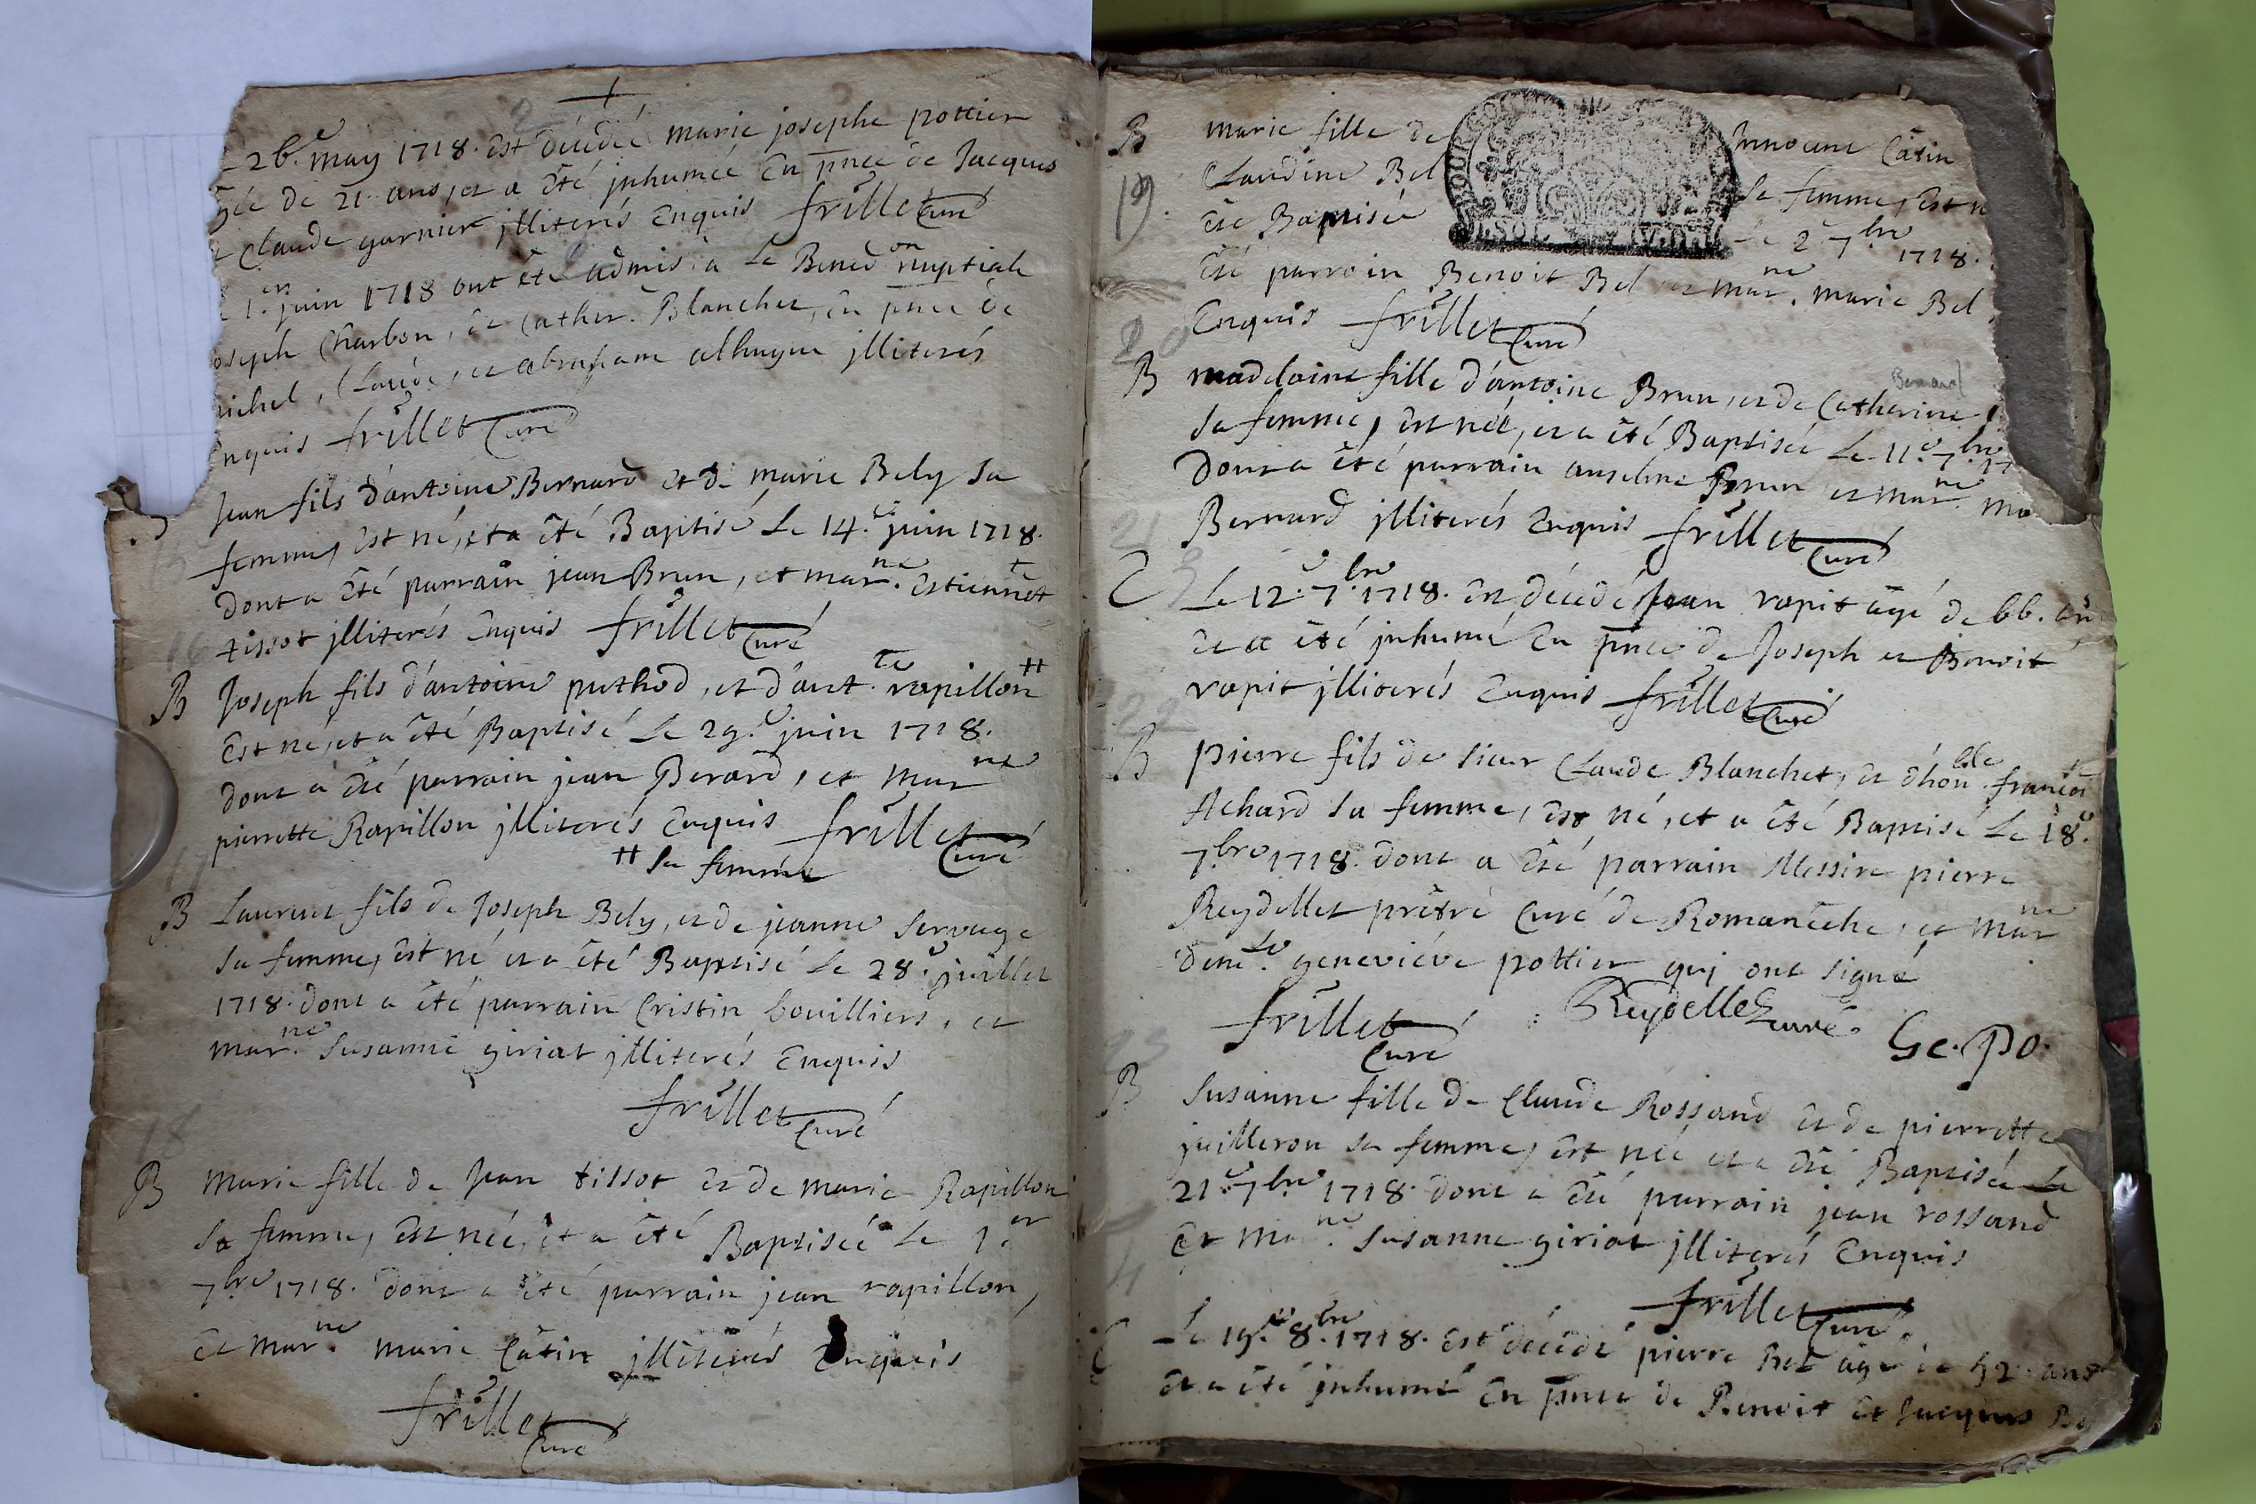 26.e may 1718. est décédée marie josephe pottier
gée de 21. ans, et a été jnhumée En pnce de Jacques
Claude garnier jlliterés Enquis frillet Curé
1.er juin 1718 ont été admis à la Bened.on nuptiale
oseph Charbon, et Cather. Blanchet, en pnce de
ichel, Claude, et abraham jlliterés
nquis frillet Curé
Jean fils d'antoine Bernard et de marie Bely sa
femme, est né, et a été Baptisé Le 14.e juin 1718.
dont a été parrain jean Brun, et mar.ne Estiennet.te
tissot jlliterés Enquis frillet Curé
B Joseph fils d'antoine puthod, et d'ant.te rapillon #
est né, et a été Baptisé Le 29.e juin 1718.
dont a été parrain jean Berard, et mar.ne
pierrette Rapillon jlliterés Enquis frillet Curé
# sa femme
B Laurent fils de Joseph Bely, et de jeanne servage
sa femme, est né et a été Baptisé Le 28.e juillet
1718. dont a été parrain Cristin bouilliers, et
mar.ne susanne giriat jlliterés Enquis
frillet Curé
B Marie fille de Jean tissot et de marie Rapillon
sa femme, est née, et a été Baptisée Le 1.er
7.bre 1718. dont a été parrain jean rapillon,
et mar.ne marie Catin jlliterés Enquis
frillet Curé
B marie fille de Jnnocent Catin
19. Claudine Bel sa femme, est n
été Baptisée Le 2.e 7.bre 1718.
été parrain Benoit Bel et mar.ne marie Bel
Enquis frillet Curé
20
Bernard
B madelaine fille d'antoine Brun, et de Catherine
sa femme, est née, et a été Baptisée Le 11.e 7.bre 17
dont a été parrain anselme Brun et mar.ne ma
Bernard jlliterés Enquis frillet Curé
21
C Le 12.e 7.bre 1718. est décédé Jean rapit âgé de 66. an
et a été jnhumé En pnce de Joseph et Benoit
rapit jlliterés Enquis frillet Curé
22
B pierre fils de sieur Claude Blanchet, et d'hon.ble françoi
Achard sa femme, est né, et a été Baptisé Le 18.e
7.bre 1718. dont a été parrain Messire pierre
Reydellet prêtre Curé de Romanêche, et mar.ne
dem.le geneviéve pottier quj ont signé
frillet Curé Reydellet curé. Ge. po.
23
B susanne fille de Claude Rossand et de pierrette
juilleron sa femme, est née et a été Baptisée Le
21.e 7.bre 1718. dont a été parrain jean rossand
et mar.ne susanne giriat jlliterés Enquis
frillet Curé
C Le 19.e 8.bre 1718. est décédé pierre Bel âgé de 52. ans
et a été jnhumé En pnce de Benoit et Jacques Be